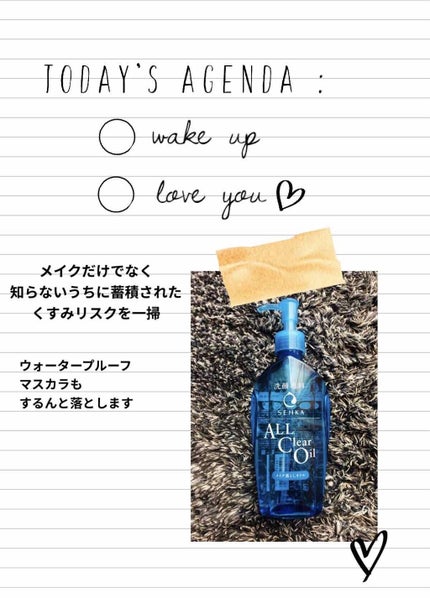 TODAY'S AGENDA :
wake up
love you
メイクだけでなく
知らないうちに蓄積された
くすみリスクを一掃
ウォータープルーフ
マスカラも
するんと落とします
洗顔専科
SENKA
ALL
Clear
Oil